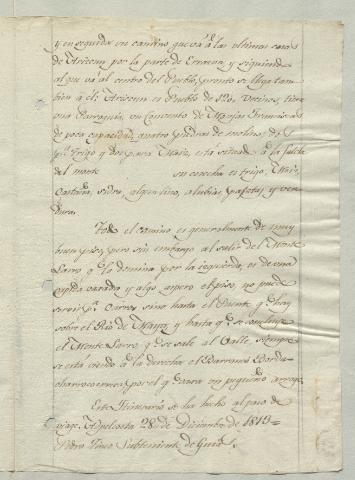 y en seguida un camino que vá á las ultimas casas
de Arizcun por la parte de Errazu y siguiendo
al que vá al centro del Pueblo, pronto se llega tam
bien á él: Arizcun es Pueblo de 120. Vecinos, tiene
una Parroquia, un Convento de Monjas Franciscas
de poca capacidad, quatro piedras de molino, dos
pª trigo y dos para Maiz, está situado á la falda
del monte su cosecha es trigo, Maiz,
Castaña, sidra, algun lino, alubias, patatas, y ver
dura.
Todo el camino es generalmente de muy
buen piso, pero sin embargo al salir del Monte
Larro qe lo domina por la izquierda, es de una
rapida y algo aspero el piso, no puede
servir pª Carros sino hasta el Puente qe hay
sobre el Rio de Maya y hasta qe se concluye
el Monte Larro, y se sale al Valle, siempre
se está viendo á la derecha el Barranco Borda
por el qe corre un pequeño arroyo.
Este Itinerario se ha hecho al paso de
viaje. Azpilcueta 28 de Diciembre de 1813=
Pedro Subteniente de Guias.